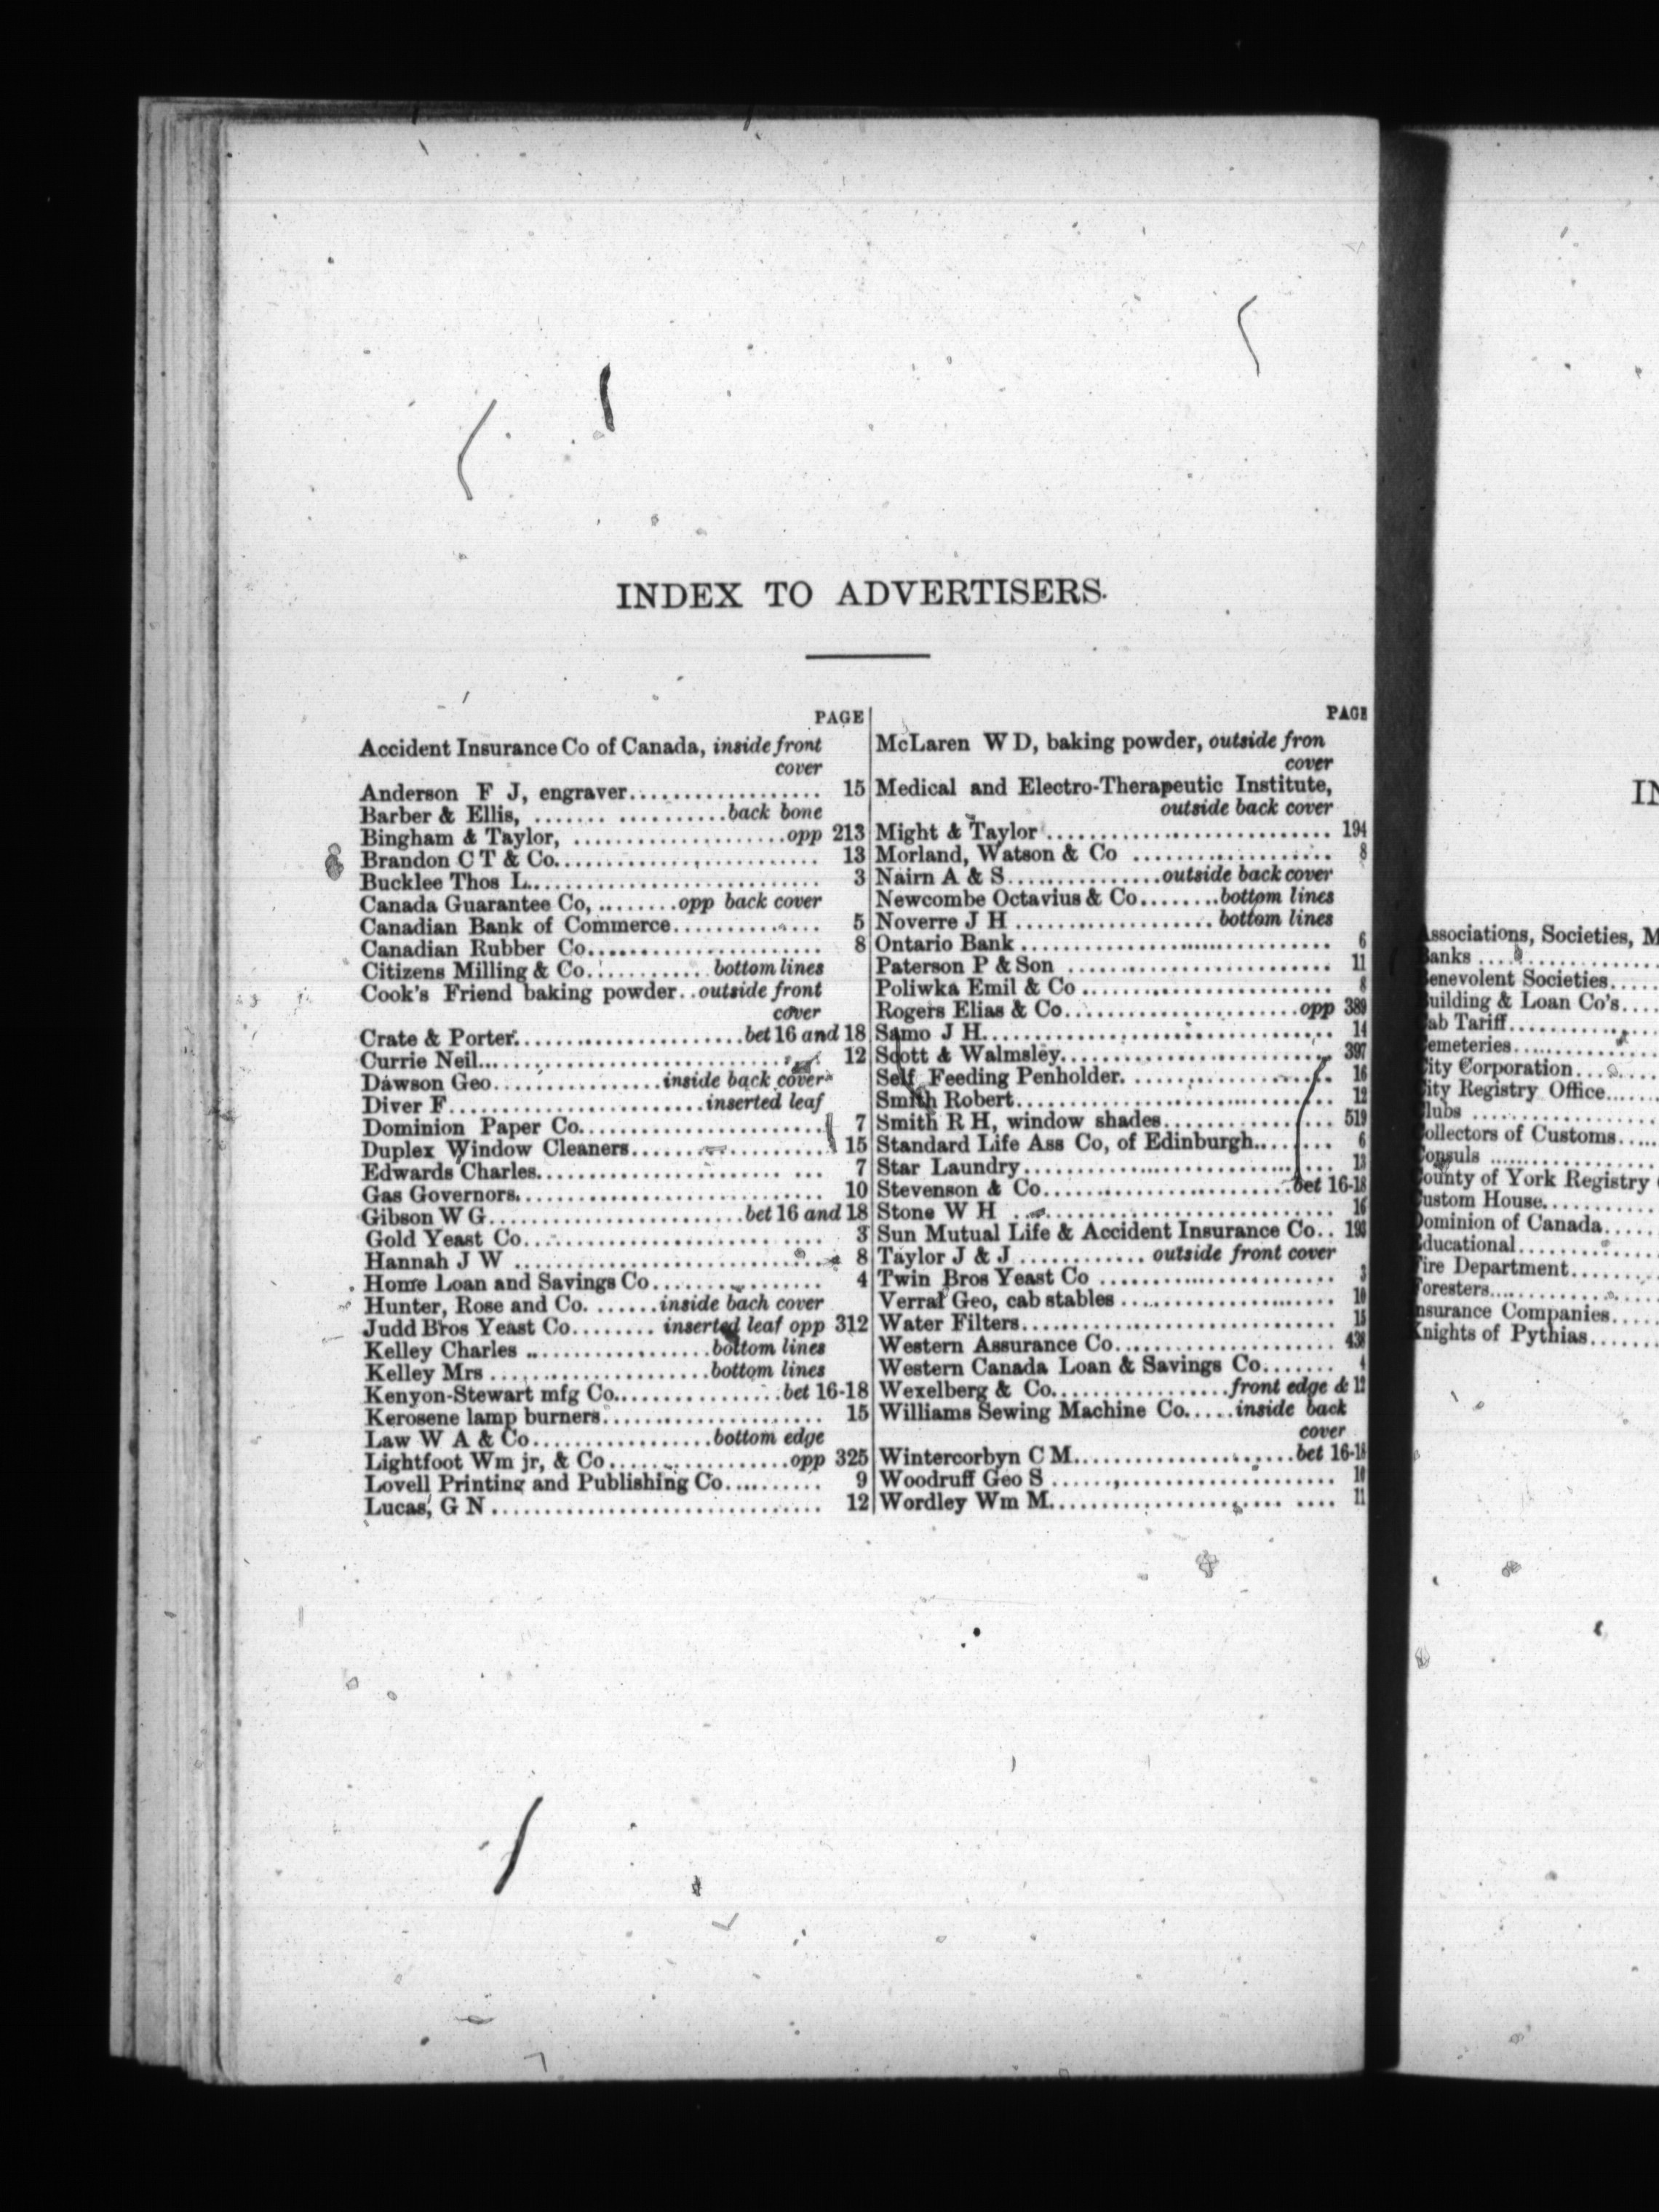 INDEX TO ADVERTISERS.
PAGE
Accident Insurance Co of Canada, inside front
cover
Anderson F J, engraver.................. 15
Barber & Ellis, ....... ...........back bone
Bingham & Taylor, ....................opp 213
Brandon C T & Co......................... 13
Bucklee Thos L............................ 3
Canada Guarantee Co, ........opp back cover
Canadian Bank of Commerce.............. 5
Canadian Rubber Co...................... 8
Citizens Milling & Co........... bottom lines
Cook's Friend baking powder..outside front
cover
Crate & Porter......................bet 16 and 18
Currie Neil................................ 12
Dawson Geo................inside back cover
Diver F........................inserted leaf
Dominion Paper Co....................... 7
Duplex Window Cleaners.................. 15
Edwards Charles...................... ... 7
Gas Governors............................. 10
Gibson W G........................bet 16 and 18
Gold Yeast Co............................ 3
Hannah J W .............................. 8
Home Loan and Savings Co................ 4
Hunter, Rose and Co. ......inside bach cover
Judd Bros Yeast Co........ inserted leaf opp 312
Kelley Charles ..................bottom lines
Kelley Mrs .....................bottom lines
Kenyon-Stewart mfg Co................bet 16-18
Kerosene lamp burners..................... 15
Law W A & Co.................bottom edge
Lightfoot Wm jr, & Co.................opp 325
Lovell Printing and Publishing Co.......... 9
Lucas, G N ............................... 12
PAGE
McLaren W D, baking powder, outside fron
cover
Medical and Electro-Therapeutic Institute,
outside back cover
Might & Taylor ........................... 194
Morland, Watson & Co ................... 8
Nairn A & S...............outside back cover
Newcombe Octavius & Co........bottom lines
Noverre J H ................... bottom lines
Ontario Bank ............................. 6
Paterson P & Son ......................... 11
Poliwka Emil & Co ........................ 8
Rogers Elias & Co......................opp 389
Samo J H................................. 14
Scott & Walmsley.......................... 397
Self Feeding Penholder. ................... 16
Smith Robert.............................. 12
Smith R H, window shades................ 519
Standard Life Ass Co, of Edinburgh........ 6
Star Laundry.............................. 13
Stevenson & Co........................bet 16-18
Stone W H ............................... 16
Sun Mutual Life & Accident Insurance Co..
Taylor J & J ............ outside front cover
Twin Bros Yeast Co ....................... 3
Verral Geo, cab stables .................... 10
Water Filters.............................. 15
Western Assurance Co.....................
Western Canada Loan & Savings Co....... 4
Wexelberg & Co.................front edge & 12
Williams Sewing Machine Co.....inside back
cover
Wintercorbyn C M.....................bet 16-18
Woodruff Geo S ........................... 10
Wordley Wm M..................... .... 11
IN
Associations, Societies, M
Banks ....
Benevolent Societies.....
Building & Loan Co's....
Cab Tariff..............
Cemeteries..............
City Corporation........
City Registry Office......
Clubs ..................
Collectors of Customs.....
Consuls ................
County of York Registry
Custom House..........
Dominion of Canada.....
Educational.............
Fire Department........
Foresters...............
Insurance Companies.....
Knights of Pythias.......